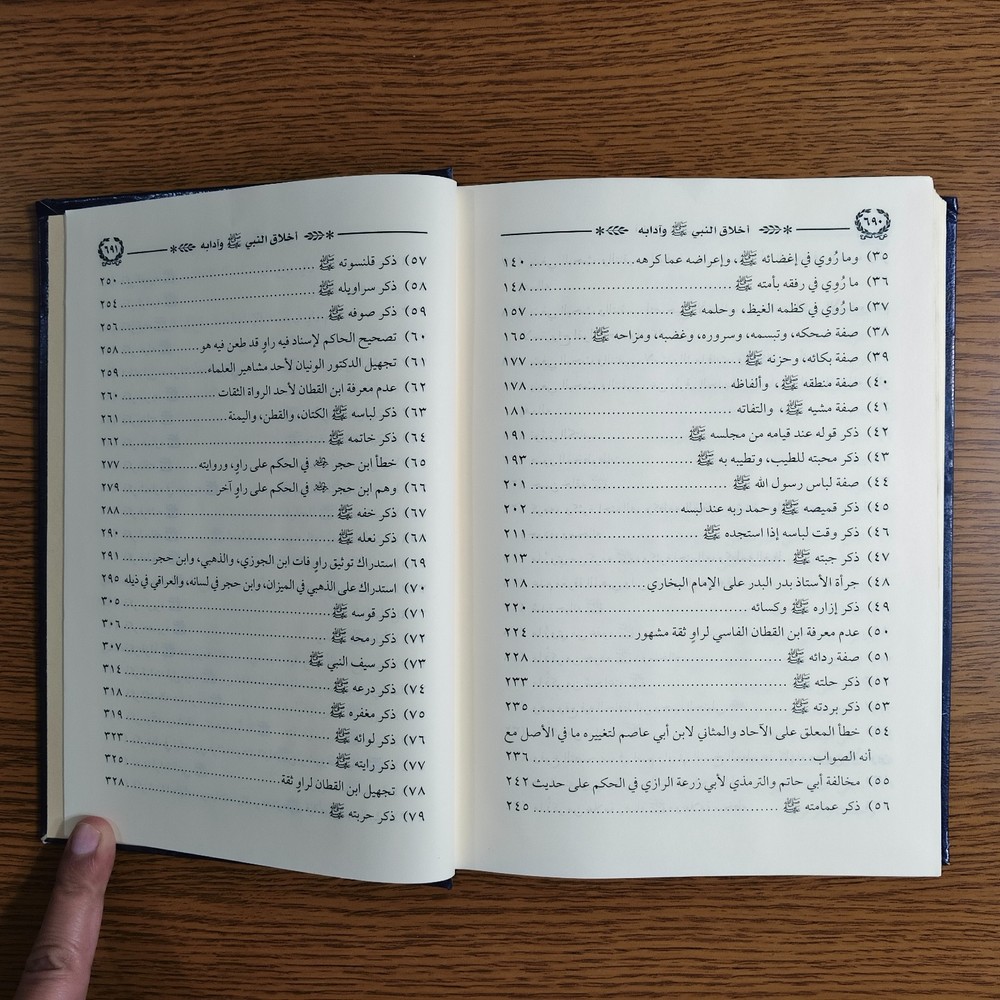 ٦٩٠
أخلاق النبي ﷺ وآدابه
٣٥) وما رُوي في إغضائه ﷺ، وإعراضه عما كرهه ١٤٠
٣٦) ما رُوي في رفقه بأمته ﷺ ١٤٨
٣٧) ما رُوي في كظمه الغيظ، وحلمه ﷺ ١٥٧
٣٨) صفة ضحكه، وتبسمه، وسروره، وغضبه، ومزاحه ﷺ ١٦٥
٣٩) صفة بكائه، وحزنه ﷺ ١٧٧
٤٠) صفة منطقه ﷺ، وألفاظه ١٧٨
٤١) صفة مشيه ﷺ، والتفاته ١٨١
٤٢) ذكر قوله عند قيامه من مجلسه ﷺ ١٩١
٤٣) ذكر محبته للطيب، وتطيبه به ﷺ ١٩٣
٤٤) صفة لباس رسول الله ﷺ ٢٠١
٤٥) ذكر قميصه ﷺ وحمد ربه عند لبسه ٢٠٢
٤٦) ذكر وقت لباسه إذا استجده ﷺ ٢١١
٤٧) ذكر جبته ﷺ ٢١٣
٤٨) جرأة الأستاذ بدر البدر على الإمام البخاري ٢١٨
٤٩) ذكر إزاره ﷺ وكسائه ٢٢٠
٥٠) عدم معرفة ابن القطان الفاسي لراوٍ ثقة مشهور ٢٢٤
٥١) صفة ردائه ﷺ ٢٢٨
٥٢) ذكر حلته ﷺ ٢٣٣
٥٣) ذكر بردته ﷺ ٢٣٥
٥٤) خطأ المعلق على الآحاد والمثاني لابن أبي عاصم لتغييره ما في الأصل مع
أنه الصواب ٢٣٦
٥٥) مخالفة أبي حاتم والترمذي لأبي زرعة الرازي في الحكم على حديث ٢٤٢
٥٦) ذكر عمامته ﷺ ٢٤٥
أخلاق النبي ﷺ وآدابه
٦٩١
٥٧) ذكر قلنسوته ﷺ ٢٥٠
٥٨) ذكر سراويله ﷺ ٢٥٤
٥٩) ذكر صوفه ﷺ ٢٥٦
٦٠) تصحيح الحاكم لإسناد فيه راوٍ قد طعن فيه هو ٢٥٨
٦١) تجهيل الدكتور الونيان لأحد مشاهير العلماء ٢٥٩
٦٢) عدم معرفة ابن القطان لأحد الرواة الثقات ٢٦٠
٦٣) ذكر لباسه ﷺ الكتان، والقطن، واليمنة ٢٦١
٦٤) ذكر خاتمه ﷺ ٢٦٢
٦٥) خطأ ابن حجر في الحكم على راوٍ، وروايته ٢٧٧
٦٦) وهم ابن حجر في الحكم على راوٍ آخر ٢٧٩
٦٧) ذكر خفه ﷺ ٢٨٨
٦٨) ذكر نعله ﷺ ٢٩٠
٦٩) استدراك توثيق راوٍ فات ابن الجوزي، والذهبي، وابن حجر ٢٩١
٧٠) استدراك على الذهبي في الميزان، وابن حجر في لسانه، والعراقي في ذيله ٢٩٥
٧١) ذكر قوسه ﷺ ٣٠٥
٧٢) ذكر رمحه ﷺ ٣٠٦
٧٣) ذكر سيف النبي ﷺ ٣٠٧
٧٤) ذكر درعه ﷺ ٣١٤
٧٥) ذكر مغفره ﷺ ٣١٨
٧٦) ذكر لوائه ﷺ ٣١٩
٧٧) ذكر رايته ﷺ ٣٢٣
٧٨) تجهيل ابن القطان لراوٍ ثقة ٣٢٥
٧٩) ذكر حربته ﷺ ٣٢٨